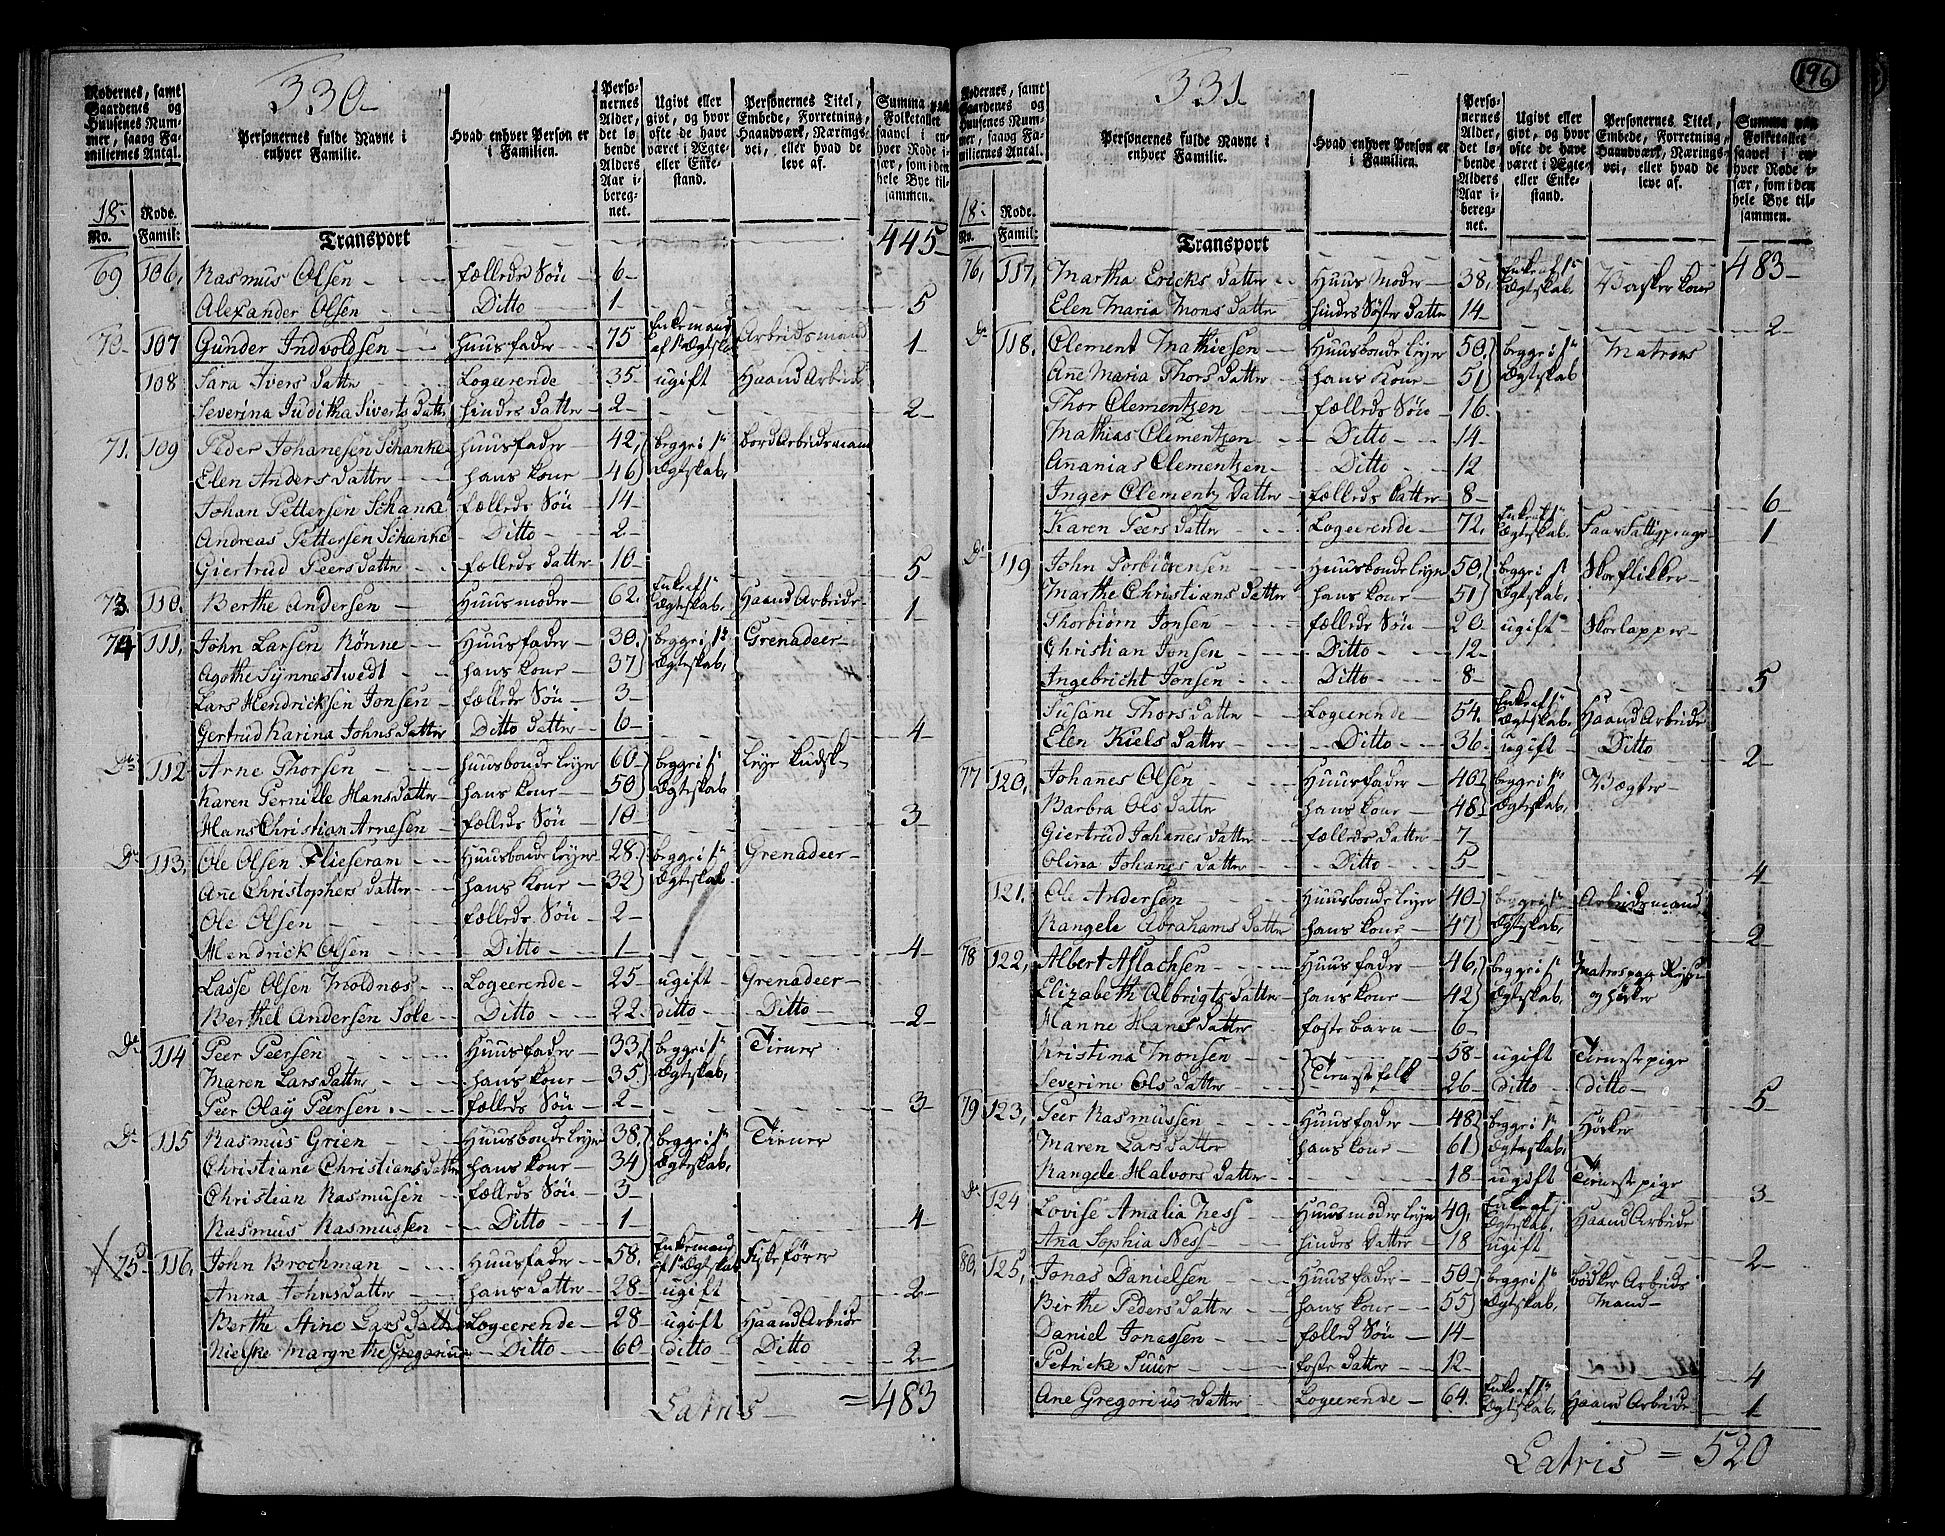 330
Rodernes, samt Gaardenes og Huusenes Nummer, saavg Familiernes Antal.
Personernes fulde Navne i enhver Familie.
Hvad enhver Person er i Familien.
Personernes Alder, det løbende Alders Aar iberegnet.
Ugivt eller givt, og hvor ofte de have været i Ægte- eller Enkestand.
Personernes Titel, Embede, Forretning, Haandværk, Næringsvei, eller hvad de leve af.
Summa paa Folketallet saavel i enhver Rode især, som i den hele Bye tilsammen.
18- Rode.
No. Famil: Transport 445
69 106, Rasmus Olsen fælleds Søn 6
Alexander Olsen Ditto 1 5
70 107 Gunder Indvoldsen Huusfader 75 Enkemand af 1 Ægtesk Arbeidsmand 1
108 Sara Ivers Datter Logeerende 35 ugift Haand Arbeide
Severina Juditha Siverts Datter hindes Datter 2 2
71. 109 Peder Johanesen Schanke Huusfader 42, begge i 1ste Bord Arbeidsmand
Elen Anders Datter hans kone 46) Ægteskab,
Johan Pettersen Schanke fælleds Søn 14
Andreas Pettersen Schanke Ditto 2
Giertrud Peersdatter fælleds Datter 10 5
73. 110. Berthe Andersen Huusmoder 62. Enke af 1ste Ægteskab, Haand Arbeide 1
74 111, John Larsen Rønne Huusfader 30,) begge i 1ste Grenadeer
Agothe Synnestwedt hans kone 37) Ægteskab,
Lars Hendricksen Jonsen fælleds Søn 3
Gertrud Karina Johns Datter Ditto Datter 6 4
Do 112 Arne Thorsen huusbonde leyer 60 begge i 1ste Leye kudsk
Karen Pernille Hansdatter hans kone 50) Ægteskab
Hans Christian Arnesen fælleds Søn 10 3
Do 113, Ole Olsen Flieseram Huusbonde leyer 28) begge i 1ste Grenadeer
Ane Christophers Datter hans Kone 32) Ægteskab
Ole Olsen fælleds Søn 2
Hendrick Olsen Ditto 1 4
Lasse Olsen Moldnæs Logeerende 25 ugift Grenadeer
Berthel Andersen Sole Ditto 22 ditto Ditto 2
Do 114 Peer Peersen Huusfader 33, begge i 1ste Tiener
Maren Lars Datter hans kone 35.) Ægteskab,
Peer Olay Peersen. fælleds Søn 2 3
Do 115 Rasmus Grien Huusbonde leyer 38,) begge i 1ste Tiener
Christiane Christians Datter hans kone 34) Ægteskab,
Christian Rasmusen fælleds Søn 3
Rasmus Rasmussen Ditto 1 4
75 116, John Brochman Huusfader 58. Enkemand af 1 Ægteskab Fiskefører
Anna Johnsdatter hans Datter 28 ugift 2
Berthe Ane Lars Datter Logeerende 28 ugift Haand Arbeide
Nielske Margrethe Gregorius Ditto 60 ditto Ditto 2
Latris = 483
196
331.
Rodernes, samt Gaardenes og Huusenes Nummer, saavg Familiernes Antal.
Personernes fulde Navne i enhver Familie.
Hvad enhver Person er i Familien.
Personernes Alder, det løbende Alders Aar iberegnet.
Ugivt eller givt, og hvor ofte de have været i Ægte- eller Enkestand.
Personernes Titel, Embede, Forretning, Haandværk, Næringsvei, eller hvad de leve af.
Summa paa Folketallet saavel i enhver Rode især, som i den hele Bye tilsammen.
18- Rode.
No. Famil: Transport 483
76, 117, Martha Ericks Datter Huus Moder 38, Enke af 1ste Ægteskab, Vasker kone
Elen Maria Mons Datter hindes Søster Datter 14 2
Do 118. Clement Mathiesen Huusbonde leyer 50,) begge i 1ste Matros
Ane Maria Thors Datter hans Kone 51) Ægteskab
Thor Clementzen fælleds Søn 16
Mathias Clementzen Ditto 14
Ananias Clementzen Ditto 12
Inger Clementz Datter fælleds Datter 8 6
Karen Peers Datter Logeerende 72, Enke af 1ste Ægteskab, Faar Fattigpenge 1
Do 119 John Torbiörensen Huusbonde leyer 50,) begge i 1 Skoeflikker
Marthe Christians Datter hans kone 51) Ægteskab,
Thorbiörn Jonsen fælleds Søn 20 ugift Skoelapper
Christian Jonsen Ditto 12
Ingebricht Jonsen Ditto 8 5
Susane Thors datter Logeerende 54. Enke af 1ste Ægteskab, Haand Arbeide
Elen Kiels Datter Ditto 36 ugift Ditto 2
77 120, Johanes Olsen Huusfader 40 begge i 1ste Vægter
Barbra Ols Datter hans kone 48) Ægteskab,
Giertrud Johanes Datter fælleds Datter 7
Olina Johanes Datter Ditto 5 4
121. Ole Andersen Huusbonde leyer 40 begge i 1ste Arbeidsmand
Rangele Abrahams Datter hans kone 47) Ægteskab, 2
78 122, Albert Aslachsen Huusfader 46,) begge i 1ste Matros og høker
Elizabeth Albrigts Datter hans kone 42) Ægteskab,
Hanne Hans Datter foste barn 6
Kristina Monsen Tienestefolk 58 ugift Tienestepige
Severine Ols Datter 26 ditto ditto 5
79 123, Peer Rasmussen Huusfader 48) begge i 1ste Høker
Maren Lars Datter hans kone 61) Ægteskab,
Rangele Halvors Datter 18 ugift Tienestepige 3
Do 124 Lovise Amalia Ness Huusmoder leyer 49, Enke af 1 Ægteskab, Haand Arbeide
Ana Sophia Ness hindes Datter 18 ugift 2
80, 125, Jonas Danielsen Huusfader 50 begge i 1ste Bødker Arbeids Mand
Birthe Peders Datter hans kone 55) Ægteskab,
Daniel Jonassen fælled Søn 14
Petricke Suur foste Datter 12 4
Ane Gregorius Datter Logeerende 64. Enke af 1ste Ægteskab, Haand Arbeide 1
Latris = 520